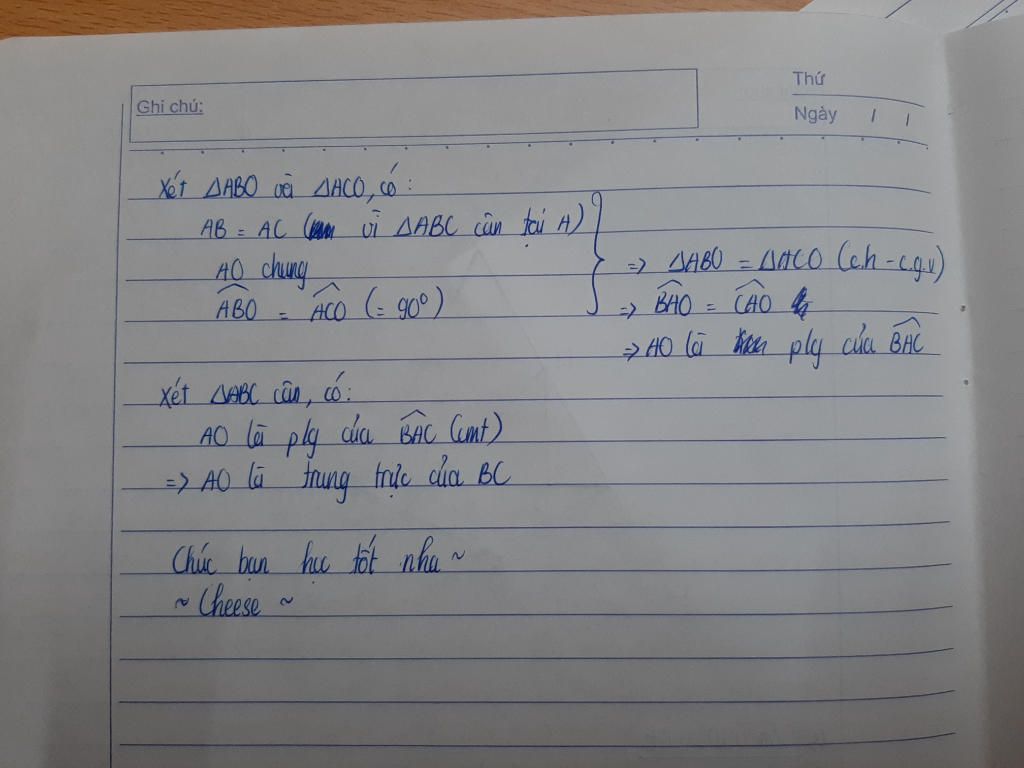 Ghi chú:
Thứ
Ngày / /
Xét ΔABO và ΔACO, có:
AB = AC ( vì ΔABC cân tại A)
AO chung
=> ΔABO = ΔACO (c.h - c.g.v)
\widehat{ABO} = \widehat{ACO} (= 90°)
=> \widehat{BAO} = \widehat{CAO}
=> AO là plg của \widehat{BAC}
Xét ΔABC cân, có:
AO là plg của \widehat{BAC} (cmt)
=> AO là trung trực của BC
Chúc bạn học tốt nha ~
~ Cheese ~